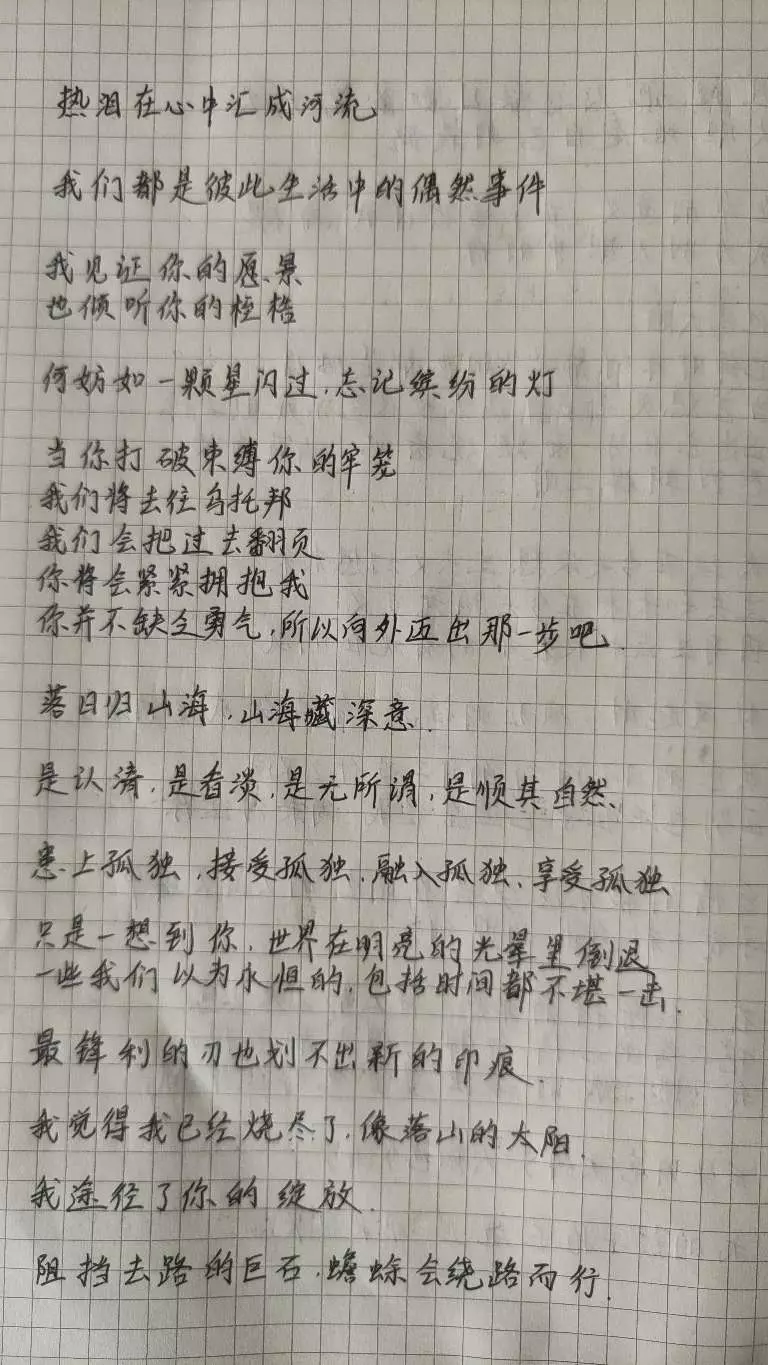 热泪在心中汇成河流
我们都是彼此生活中的偶然事件
我见证你的愿景
也倾听你的桎梏
何妨如一颗星闪过,忘记缤纷的灯
当你打破束缚你的牢笼
我们将去往乌托邦
我们会把过去翻页
你将会紧紧拥抱我
你并不缺乏勇气,所以向外迈出那一步吧.
落日归山海,山海藏深意.
是认清,是看淡,是无所谓,是顺其自然、
患上孤独,接受孤独,融入孤独,享受孤独
只是一想到你,世界在明亮的光晕里倒退
一些我们以为永恒的,包括时间都不堪一击.
最锋利的刃也划不出新的印痕.
我觉得我已经烧尽了,像落山的太阳.
我途经了你的绽放.
阻挡去路的巨石,蟾蜍会绕路而行.